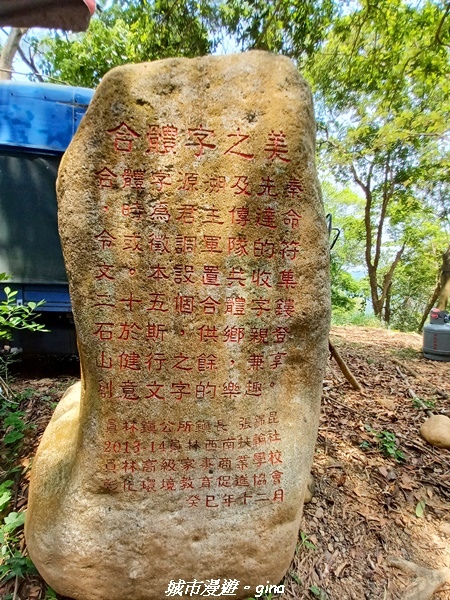 合體字之美
合體字源溯及先秦
，時為君王傳達命
令或徵調軍隊的符
文。本設置共收集
二十五個合體字鐫
石於斯，供鄉親登
山健行之餘，兼享
創意文字的樂趣。
員林鎮公所鎮長 張錦昆
2013-14員林西南扶輪社
員林高級家事商業學校
彰化環境教育促進協會
癸巳年十二月
城市漫遊。gina